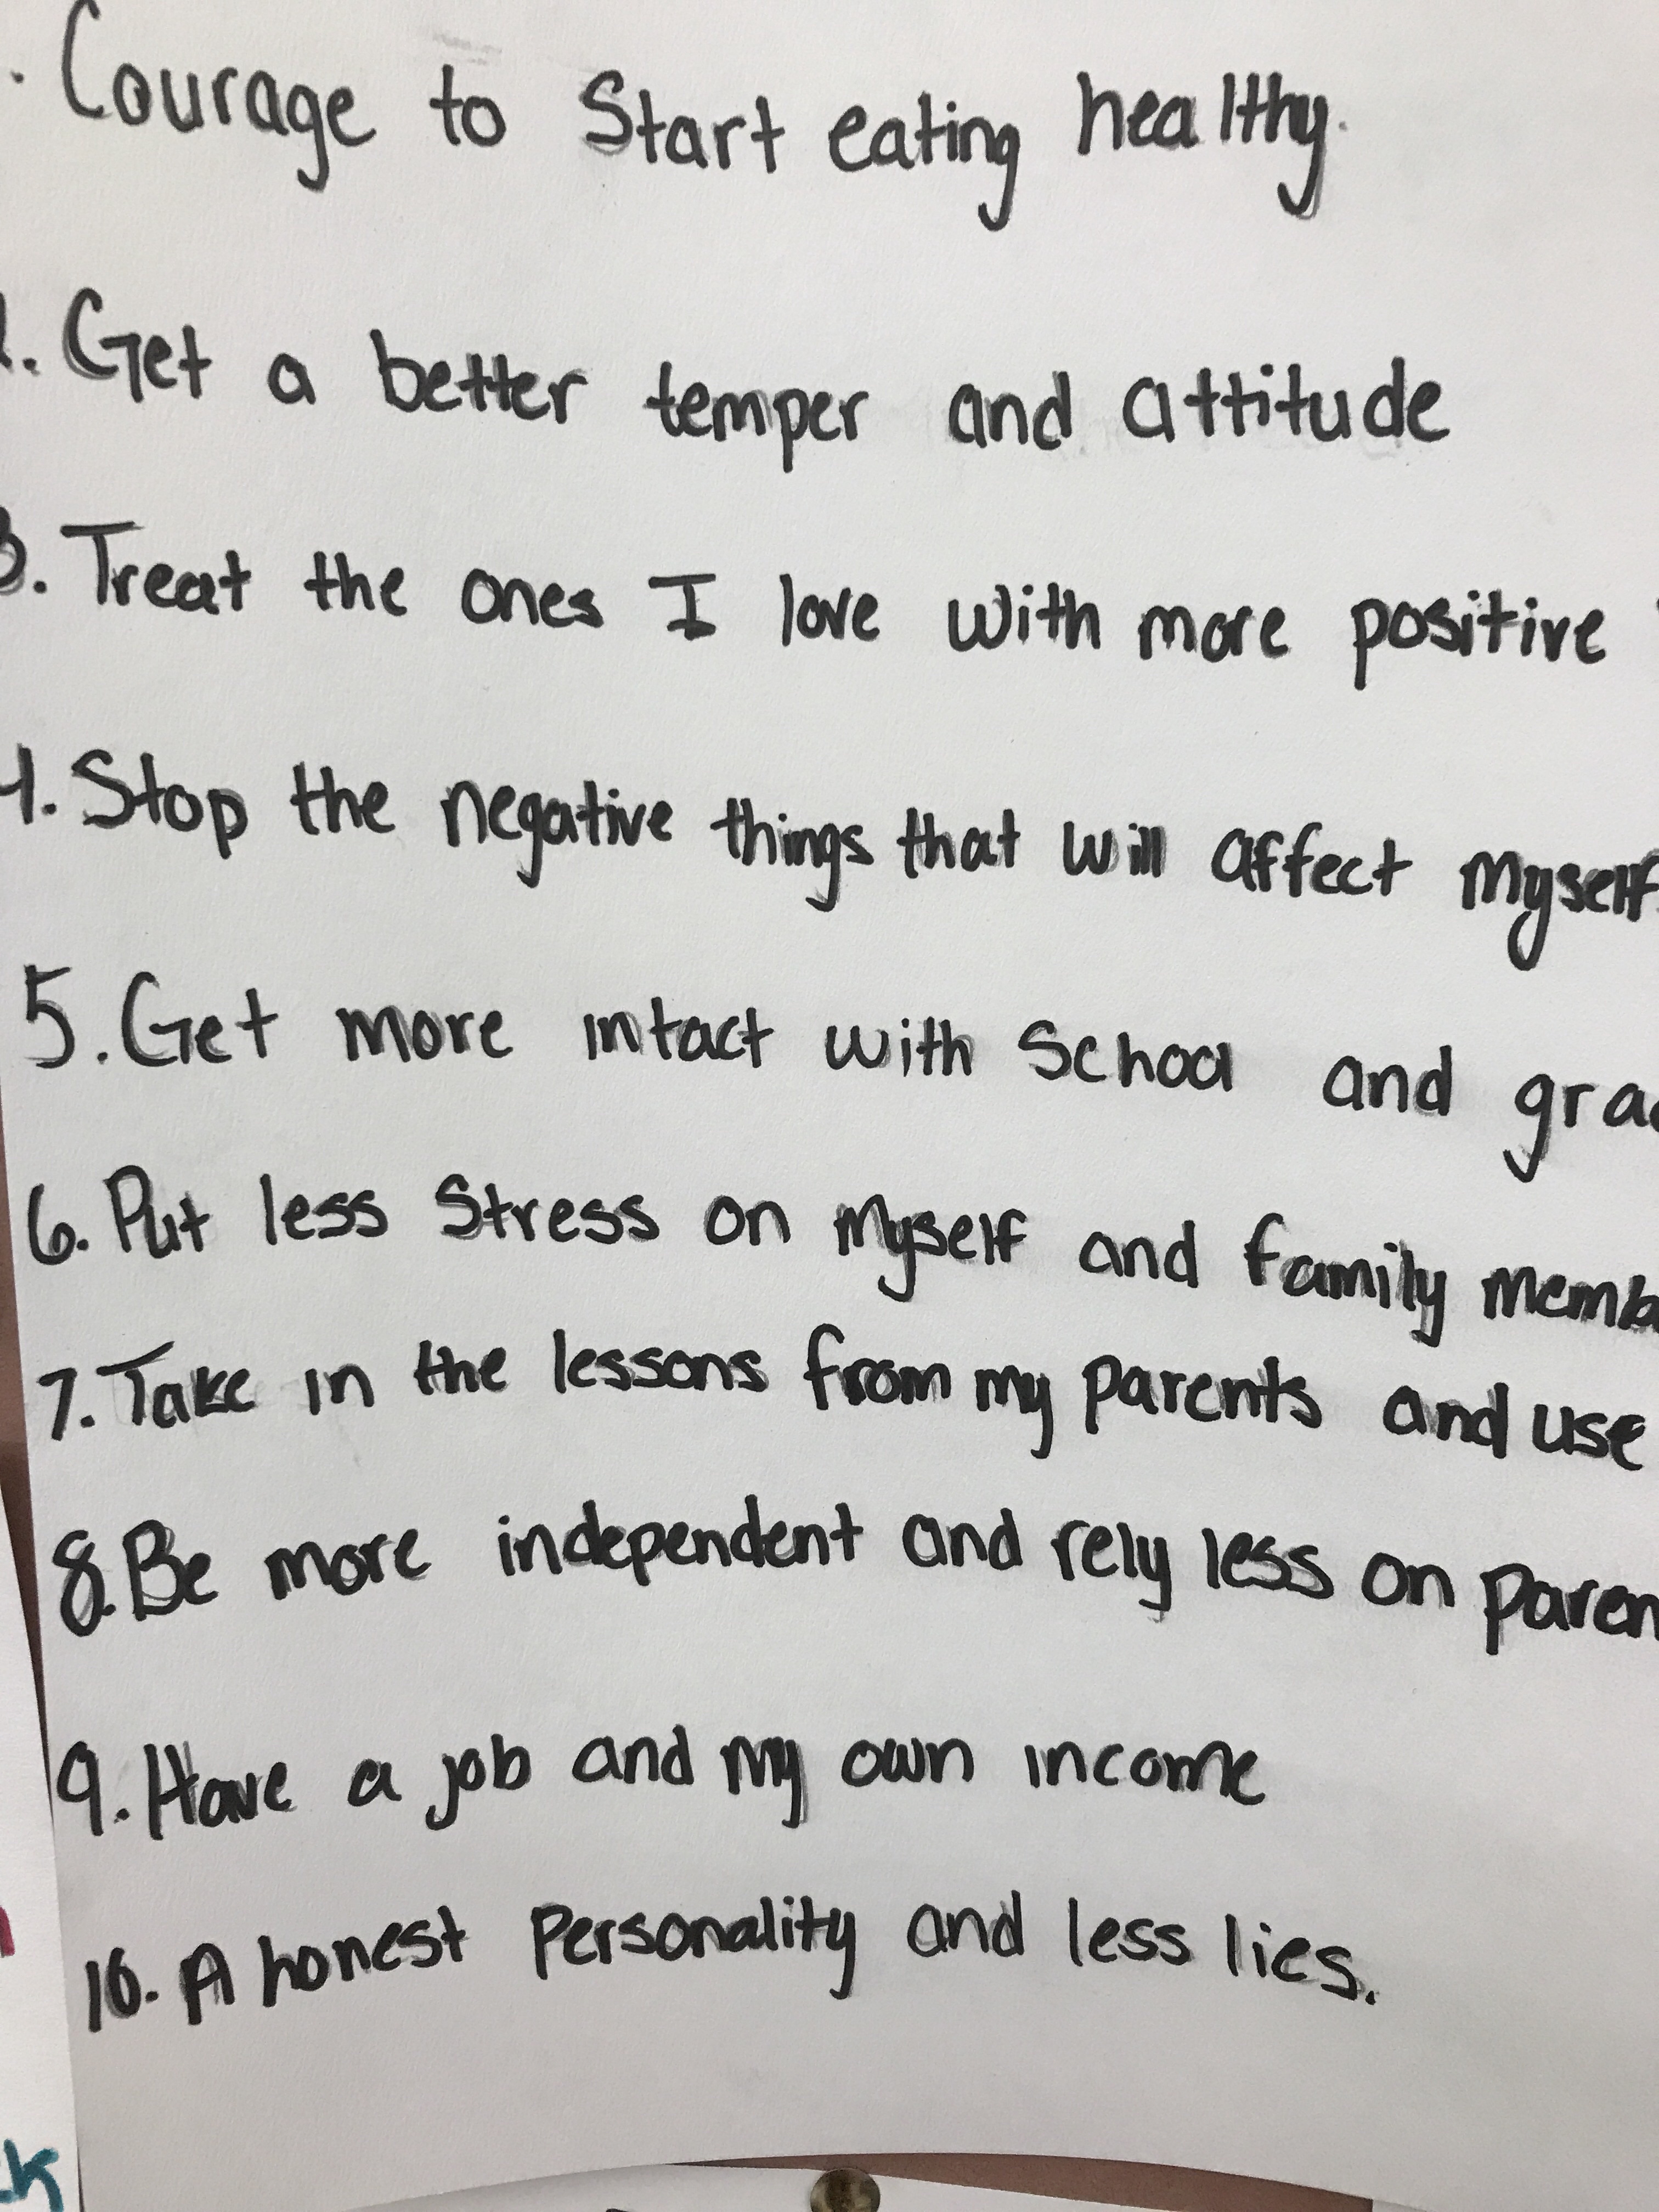 . Courage to Start eating healthy.
. Get a better temper and attitude
3. Treat the ones I love with more positive
4. Stop the negative things that will affect myself.
5. Get more intact with School and gra
6. Put less Stress on myself and family memb
7. Take in the lessons from my parents and use
8. Be more independent and rely less on paren
9. Have a job and my own income
10. A honest Personality and less lies.